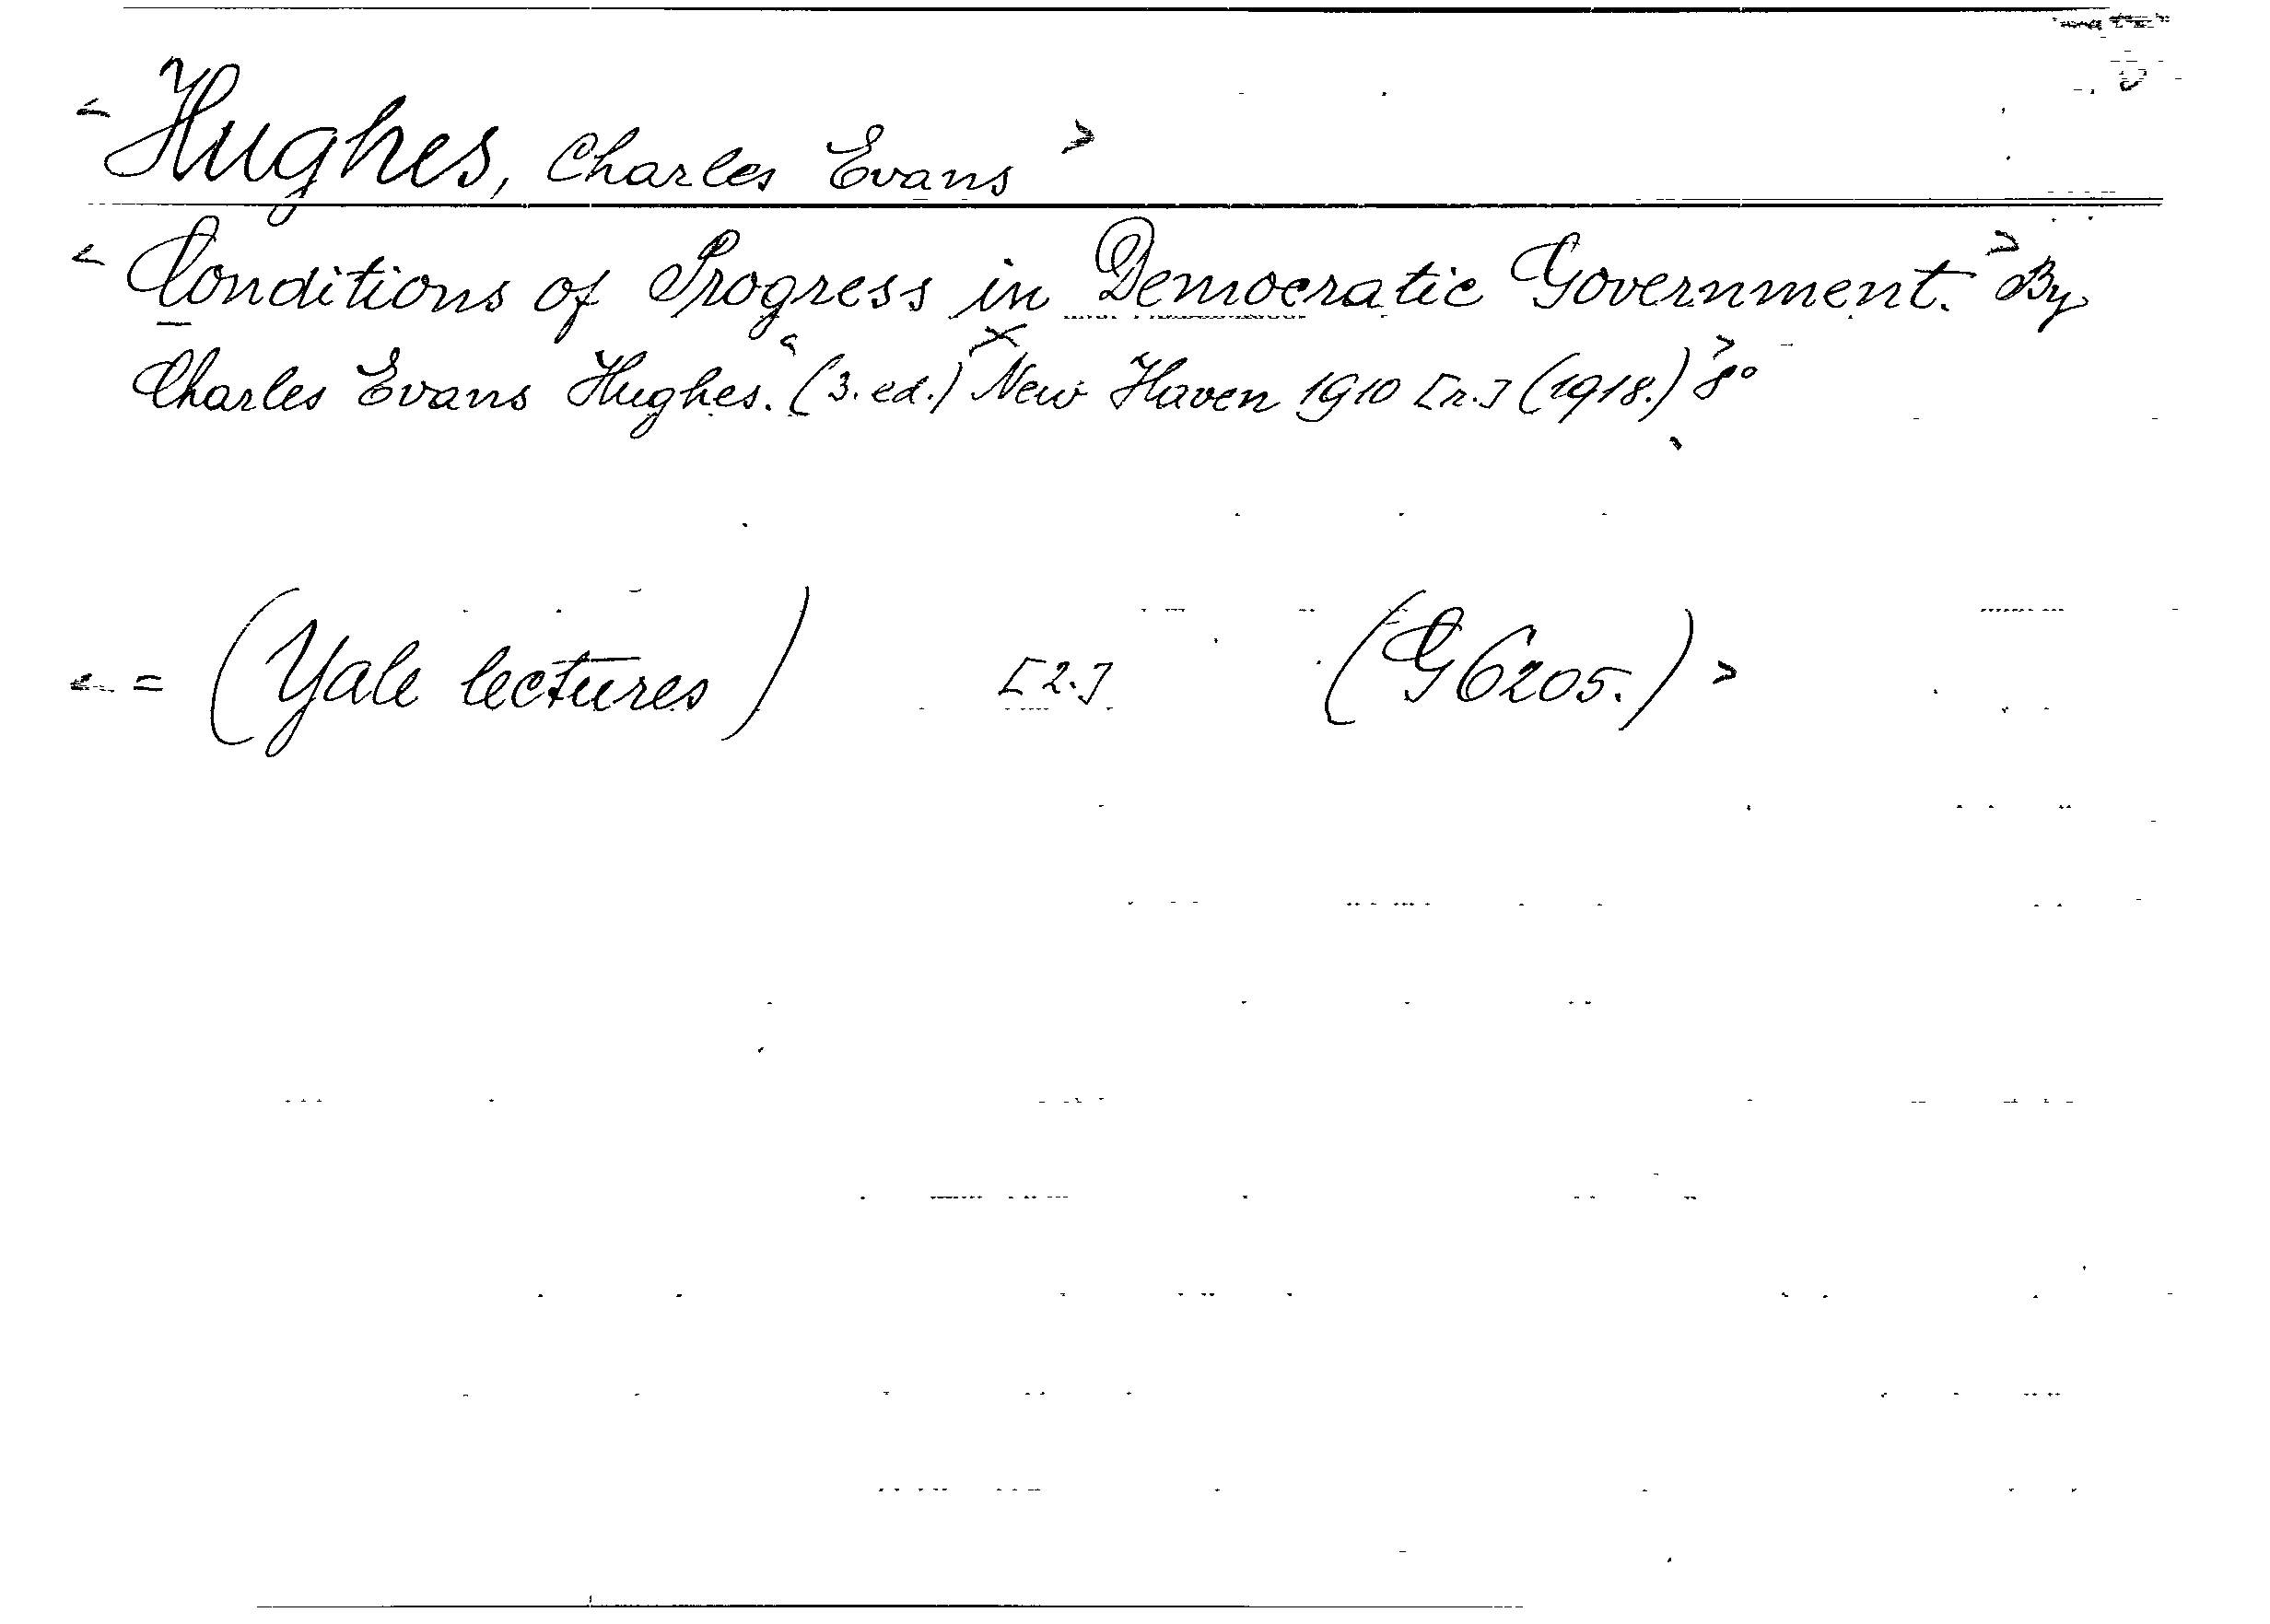 < Hughes, Charles Evans >
< Conditions of Progress in Democratic Government. > By
Charles Evans Hughes. < (3. ed.) × New Haven 1910 [r.] (1918.) > 8°
< = (Yale lectures) [2.] (G 6205.) >